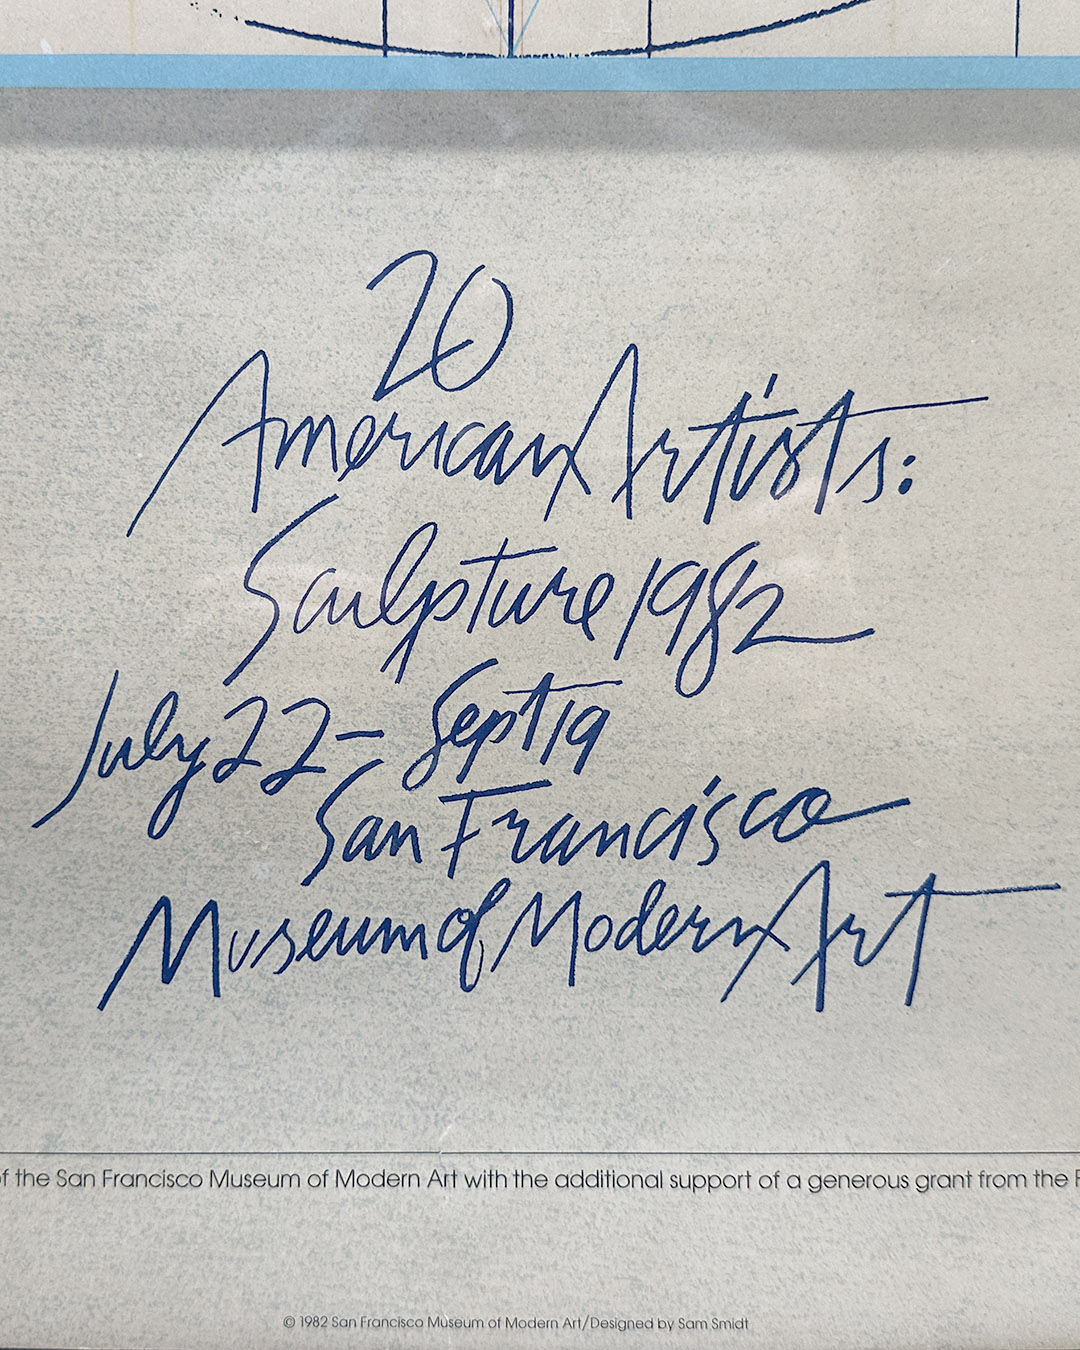 20
American Artists:
Sculpture 1982
July 22 - Sept 19
San Francisco
Museum of Modern Art
of the San Francisco Museum of Modern Art with the additional support of a generous grant from the
© 1982 San Francisco Museum of Modern Art/Designed by Sam Smidt